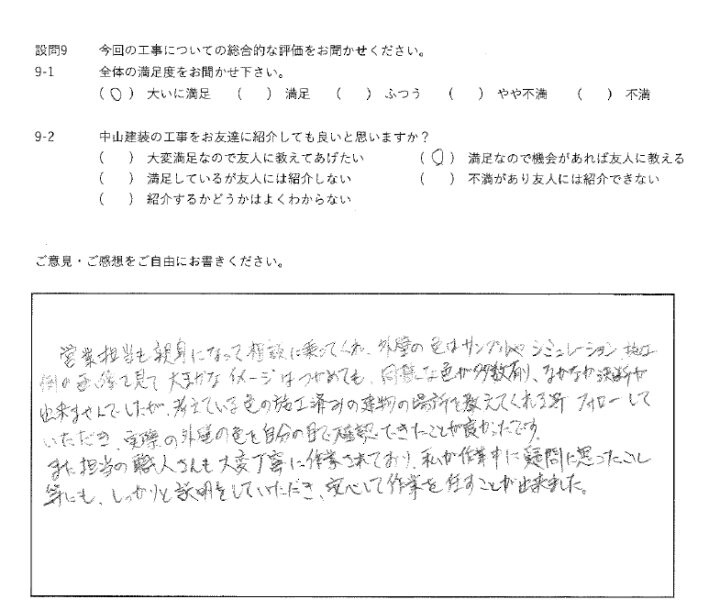 設問9　今回の工事についての総合的な評価をお聞かせください。
9-1　全体の満足度をお聞かせ下さい。
(○) 大いに満足　(　) 満足　(　) ふつう　(　) やや不満　(　) 不満
9-2　中山建装の工事をお友達に紹介しても良いと思いますか？
(　) 大変満足なので友人に教えてあげたい　(○) 満足なので機会があれば友人に教える
(　) 満足しているが友人には紹介しない　(　) 不満があり友人には紹介できない
(　) 紹介するかどうかはよくわからない
ご意見・ご感想をご自由にお書きください。
営業担当も親身になって相談に乗ってくれ、外壁の色はサンプルや シミュレーション、施工
例の 見て 大まかな イメージはつかめても、同意な色が多数有り、なかなか決断が
出来ませんでしたが、考えている色の施工済みの建物の場所を教えてくれる等 フォローして
いただき、実際の外壁の色を自分の目で確認できたことが良かったです。
また担当の職人さんも大変丁寧に作業されており、私が作業中に疑問に思ったこと
等にも、しっかりと説明をしていただき、安心して作業を任すことが出来ました。